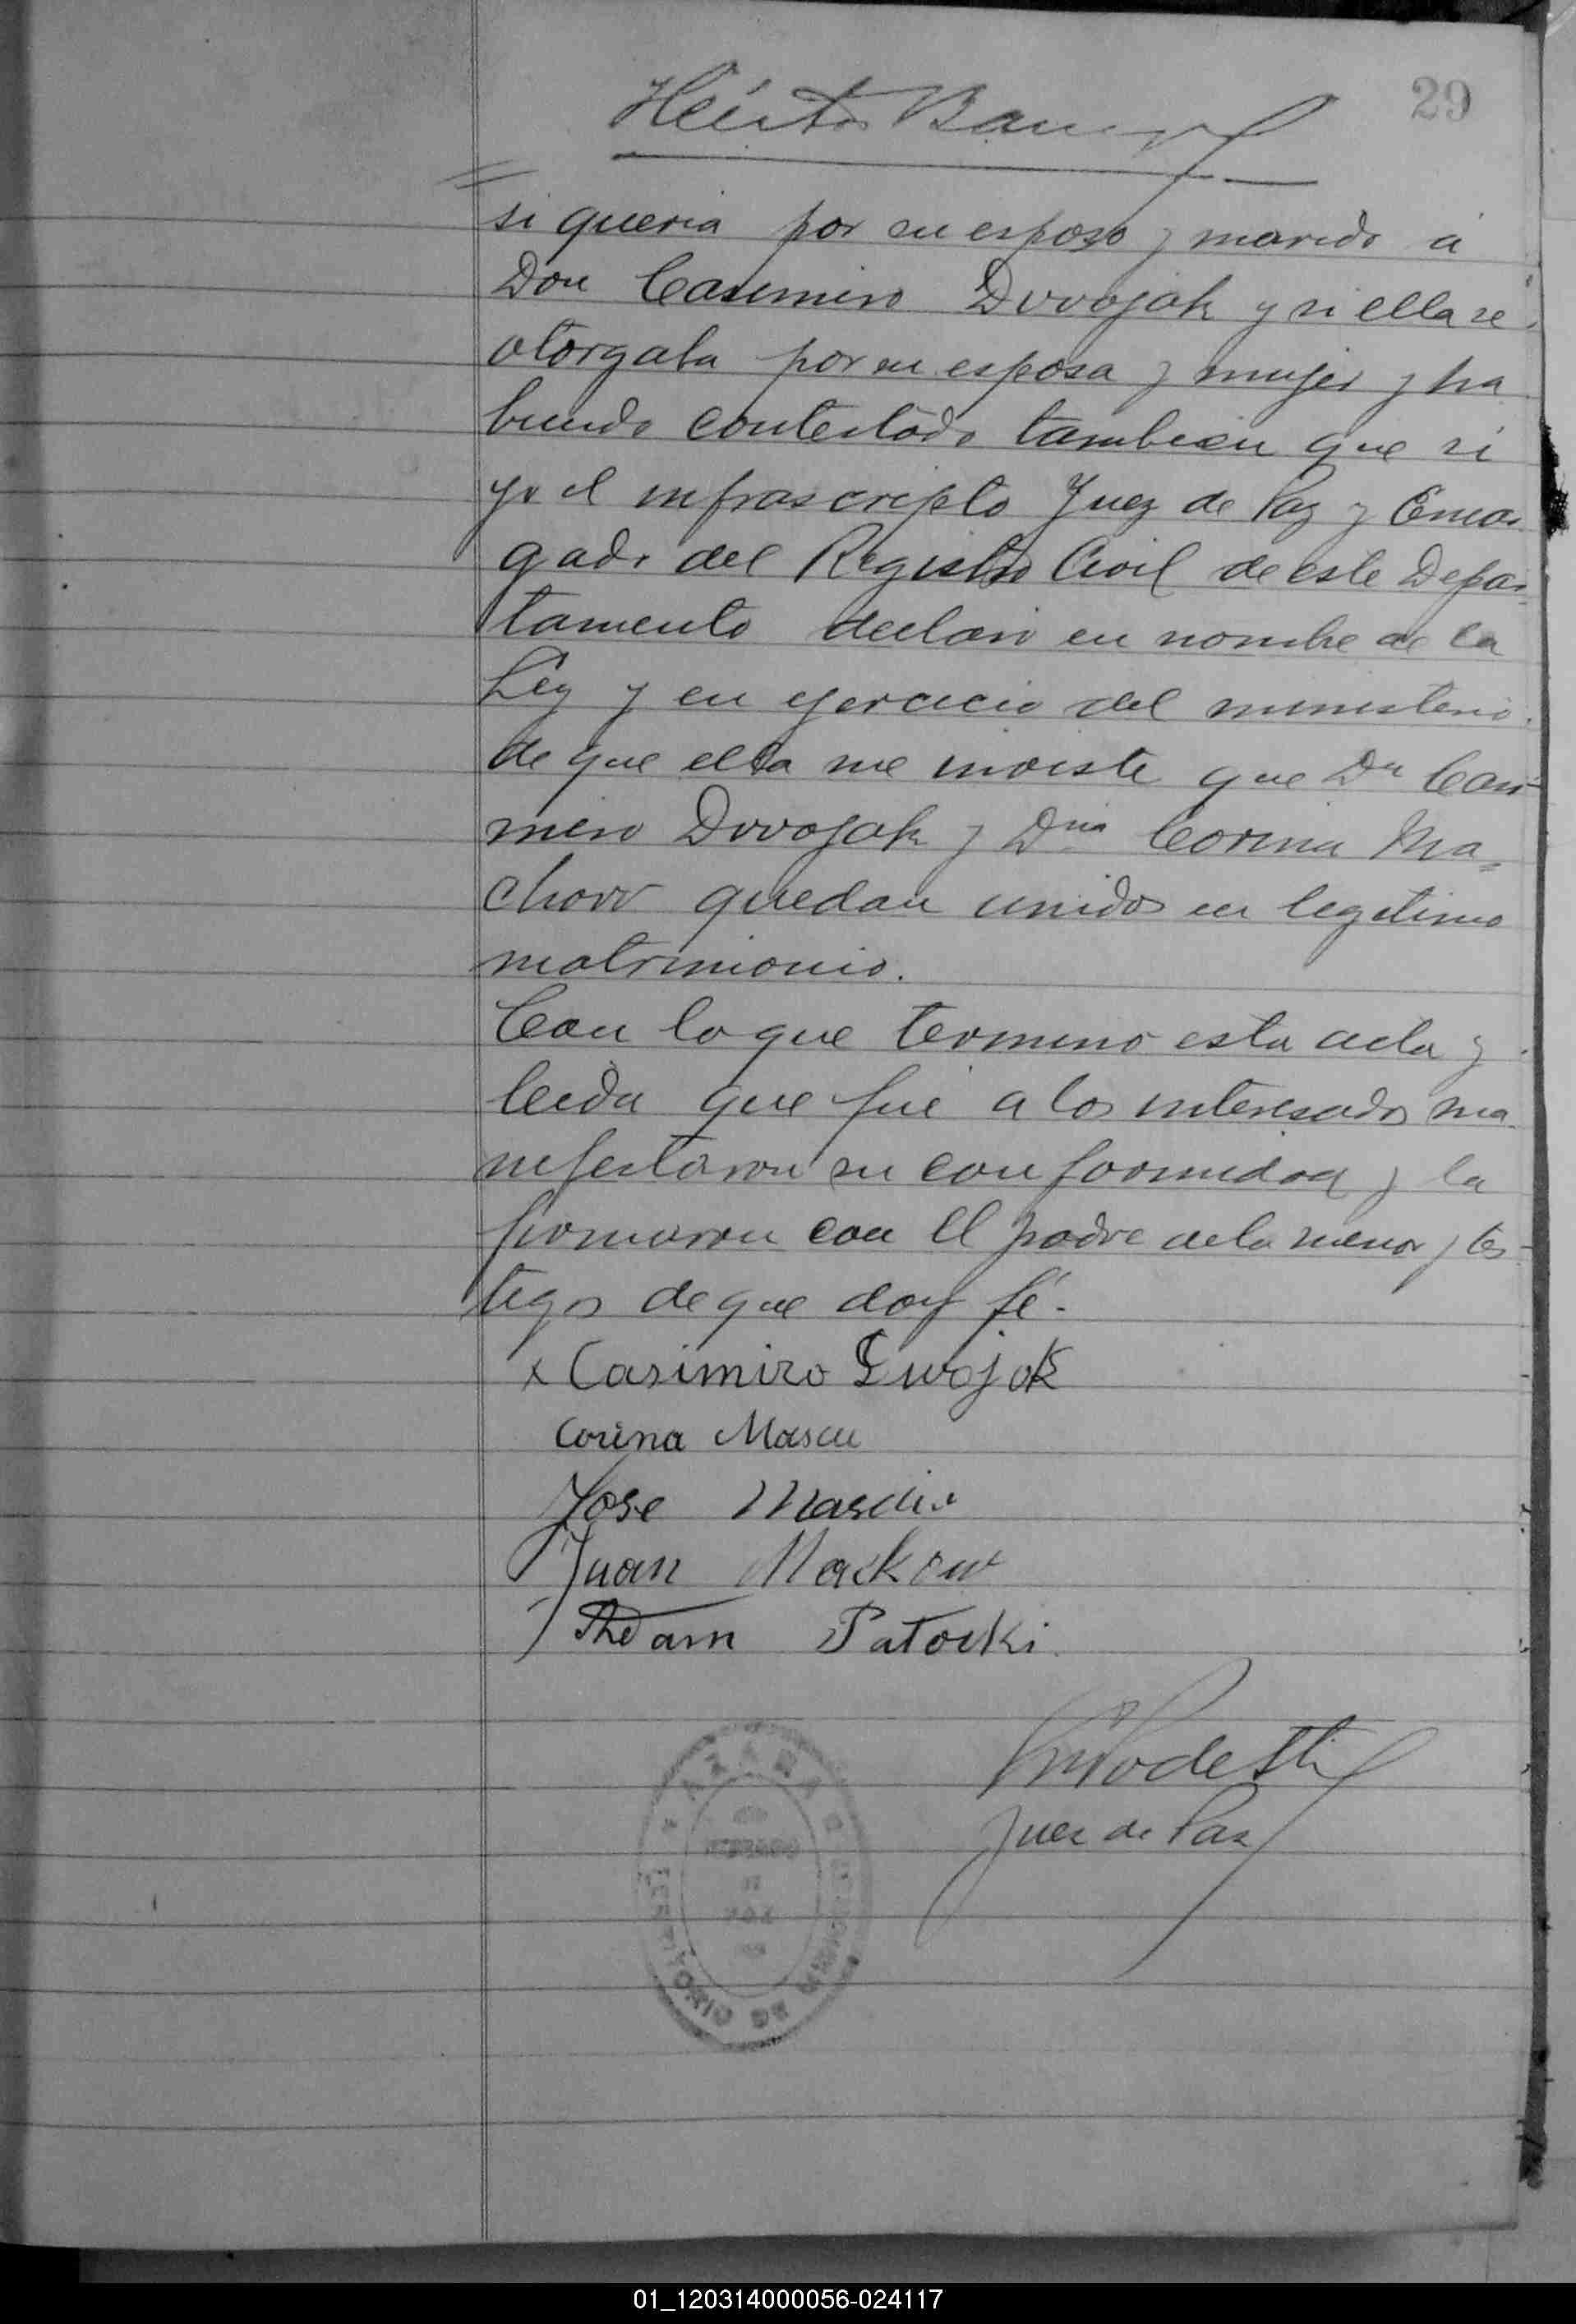 29
si queria por su esposo y marido á
Don Casimiro Dvvojak y si ella se
otorgaba por su esposa y mujer y ha
biendo contestado tambien que si
yo el infrascripto Juez de Paz y Encar
gado del Registro Civil de este Depar
tamento declaro en nombre de la
Ley y en ejercicio del ministerio
de que ella me inviste que Dn Casi-
miro Dvvojak y Dña Corina Ma=
chovv quedan unidos en legitimo
matrimonio.
Con lo que termino esta acta y
leida que fué a los interesados ma
nifestaron su conformidad y la
firmaron con el padre de la menor y tes-
tigos de que doy fé.-
x Casimiro Dwojak
Corina
Jose
Juan Mackow
Adam Patocki
Podesti
Juez de Paz
TERRITORIO DE MISIONES
01_120314000056-024117